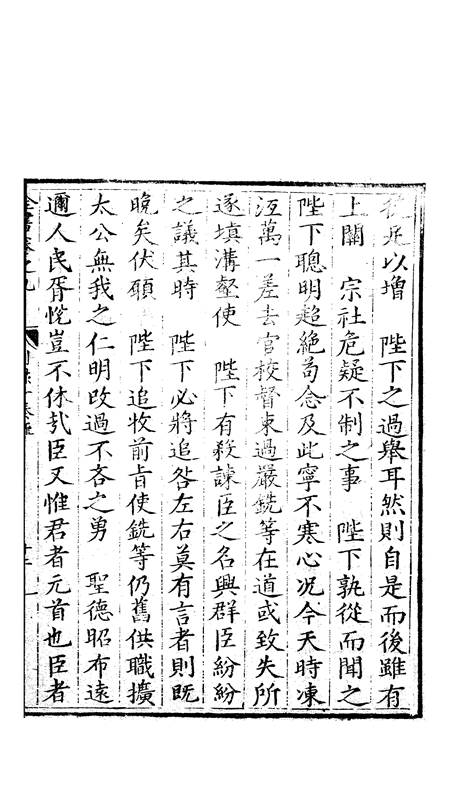 從死以增　陛下之過舉耳然則自是而後雖有
上關　宗社危疑不制之事　陛下孰從而聞之
陛下聰明超絕苟念及此寧不寒心况今天時凍
沍萬一差去官校督束過嚴銑等在道或致失所
遂填溝壑使　陛下有殺諫臣之名興群臣紛紛
之議其時　陛下必將追咎左右莫有言者則既
晚矣伏願　陛下追收前旨使銑等仍舊供職擴
太公無我之仁明改過不吝之勇　聖德昭布遠
邇人民胥悅豈不休哉臣又惟君者元首也臣者
全書卷之九